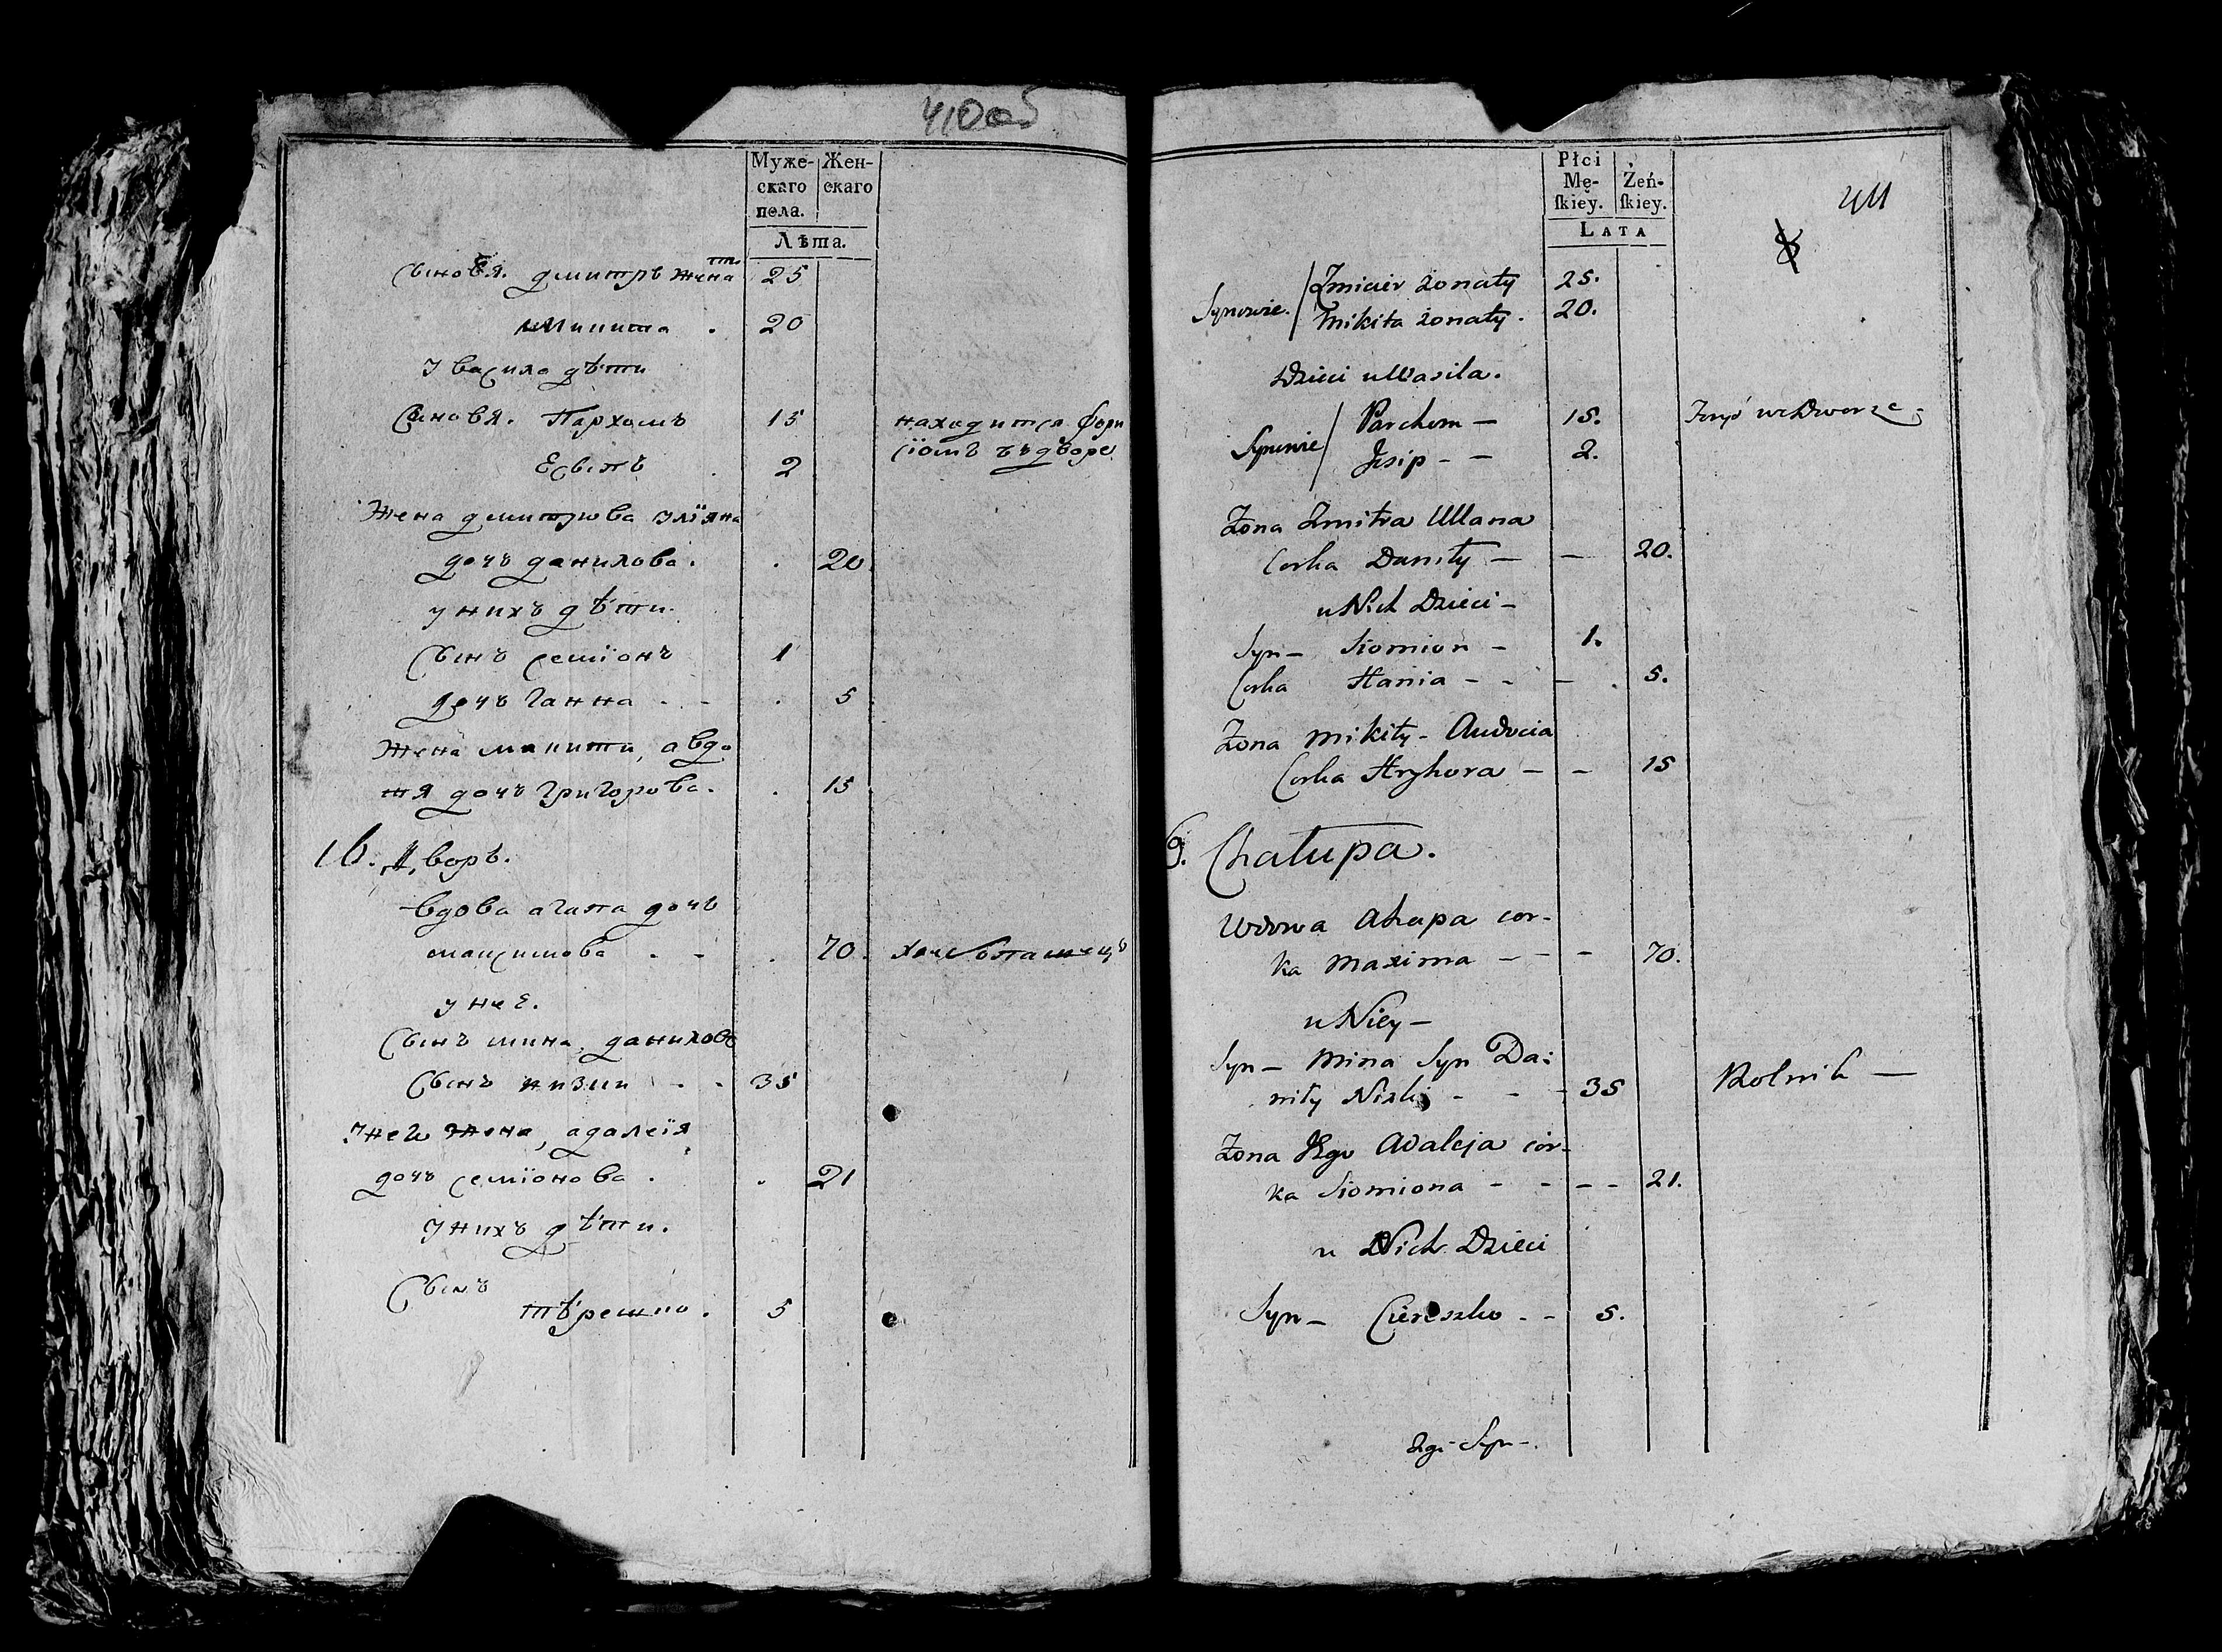 410 об
Муже- Жен-
скаго скаго
пола.
Лѣта.
Сыновя. дмитръ жена т. 25
Микита . 20
У васила дѣти
Сыновя. Пархомъ 15 находится форы
сіомъ въ дворе
Есыпъ . 2
Жена дмитрова улїяна
дочъ данилова. . 20
у нихъ дѣти.
Сынъ семїонъ 1
дочъ ганна . - . 5
Жена микити, авдо
тя дочъ григорова. . 15
16. Дворъ.
вдова агапа дочъ
максимова . - . 70. хлебопашецъ
у нее.
Сынъ мина даниловъ
Сынъ низки - - 35
У него жена, адалеїя
дочъ семїонова . . 21
У нихъ дѣти.
Сынъ
тѣрешко . 5
Płci
Mę- Żeń-
ſkiey. ſkiey.
LATA
411
Synowie. Zmicier żonaty 25.
Mikita żonaty. 20.
Dzieci u Wasila.
Synowie Parchom — 15. Foryś we Dworze
Jesip - - 2.
Żona Zmitra Ullana
Corka Daniły — — 20.
u Nich Dzieci —
Syn — Siomion - 1.
Corka Hania - - - . 5.
Żona Mikity - Audocia
Corka Hryhora — - 15
6. Chałupa.
Wdowa Ahapa cor-
ka Maxima — - - 70.
u Niey —
Syn — Mina Syn Da:
niły Nizki - - - 35 Rolnik —
Żona Jego Adaleja cor-
ka Siomiona - - - - 21.
u Nich Dzieci
Syn — Ciereszko - - 5.
2gi Syn -.